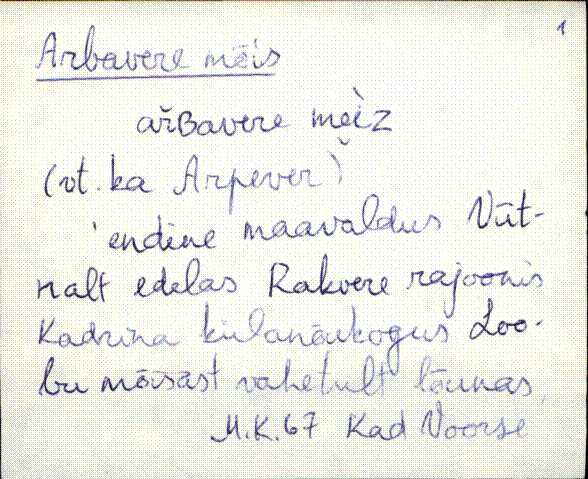 1
Arbavere mõis
ařʙavere mèiz
(vt. ka Arpever)
'endine maavaldus Vūt-
nalt edelas Rakvere rajoonis
Kadrina külanõukogus Loo-
bu mõisast vahetult lõunas.
M.K.67 Kad Voorse